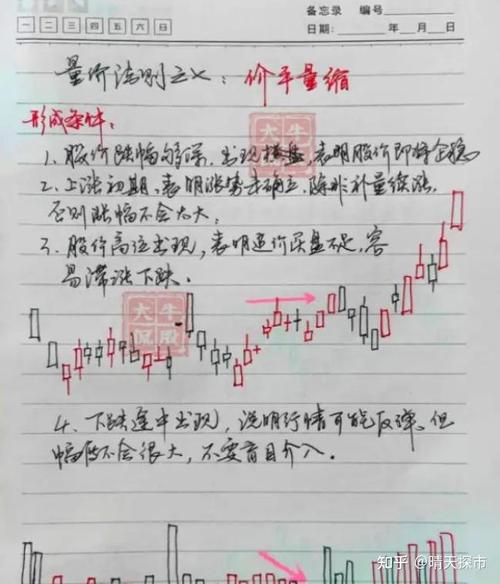 备忘录 编号
一 二 三 四 五 六 日
日期: 年 月 日
量价法则之义: 价平量缩
形成条件:
大牛
侃股
1、股价跌幅够深,出现横盘,表明股价即将企稳
2、上涨初期,表明涨势未确立,除非补量续涨,
否则涨幅不会太大,
3、股价高位出现,表明追价买盘不足,容
易滞涨下跌.
大牛
侃股
4、下跌途中出现,说明行情可能反弹.但
幅度不会很大,不要盲目介入.
知乎 @晴天探市